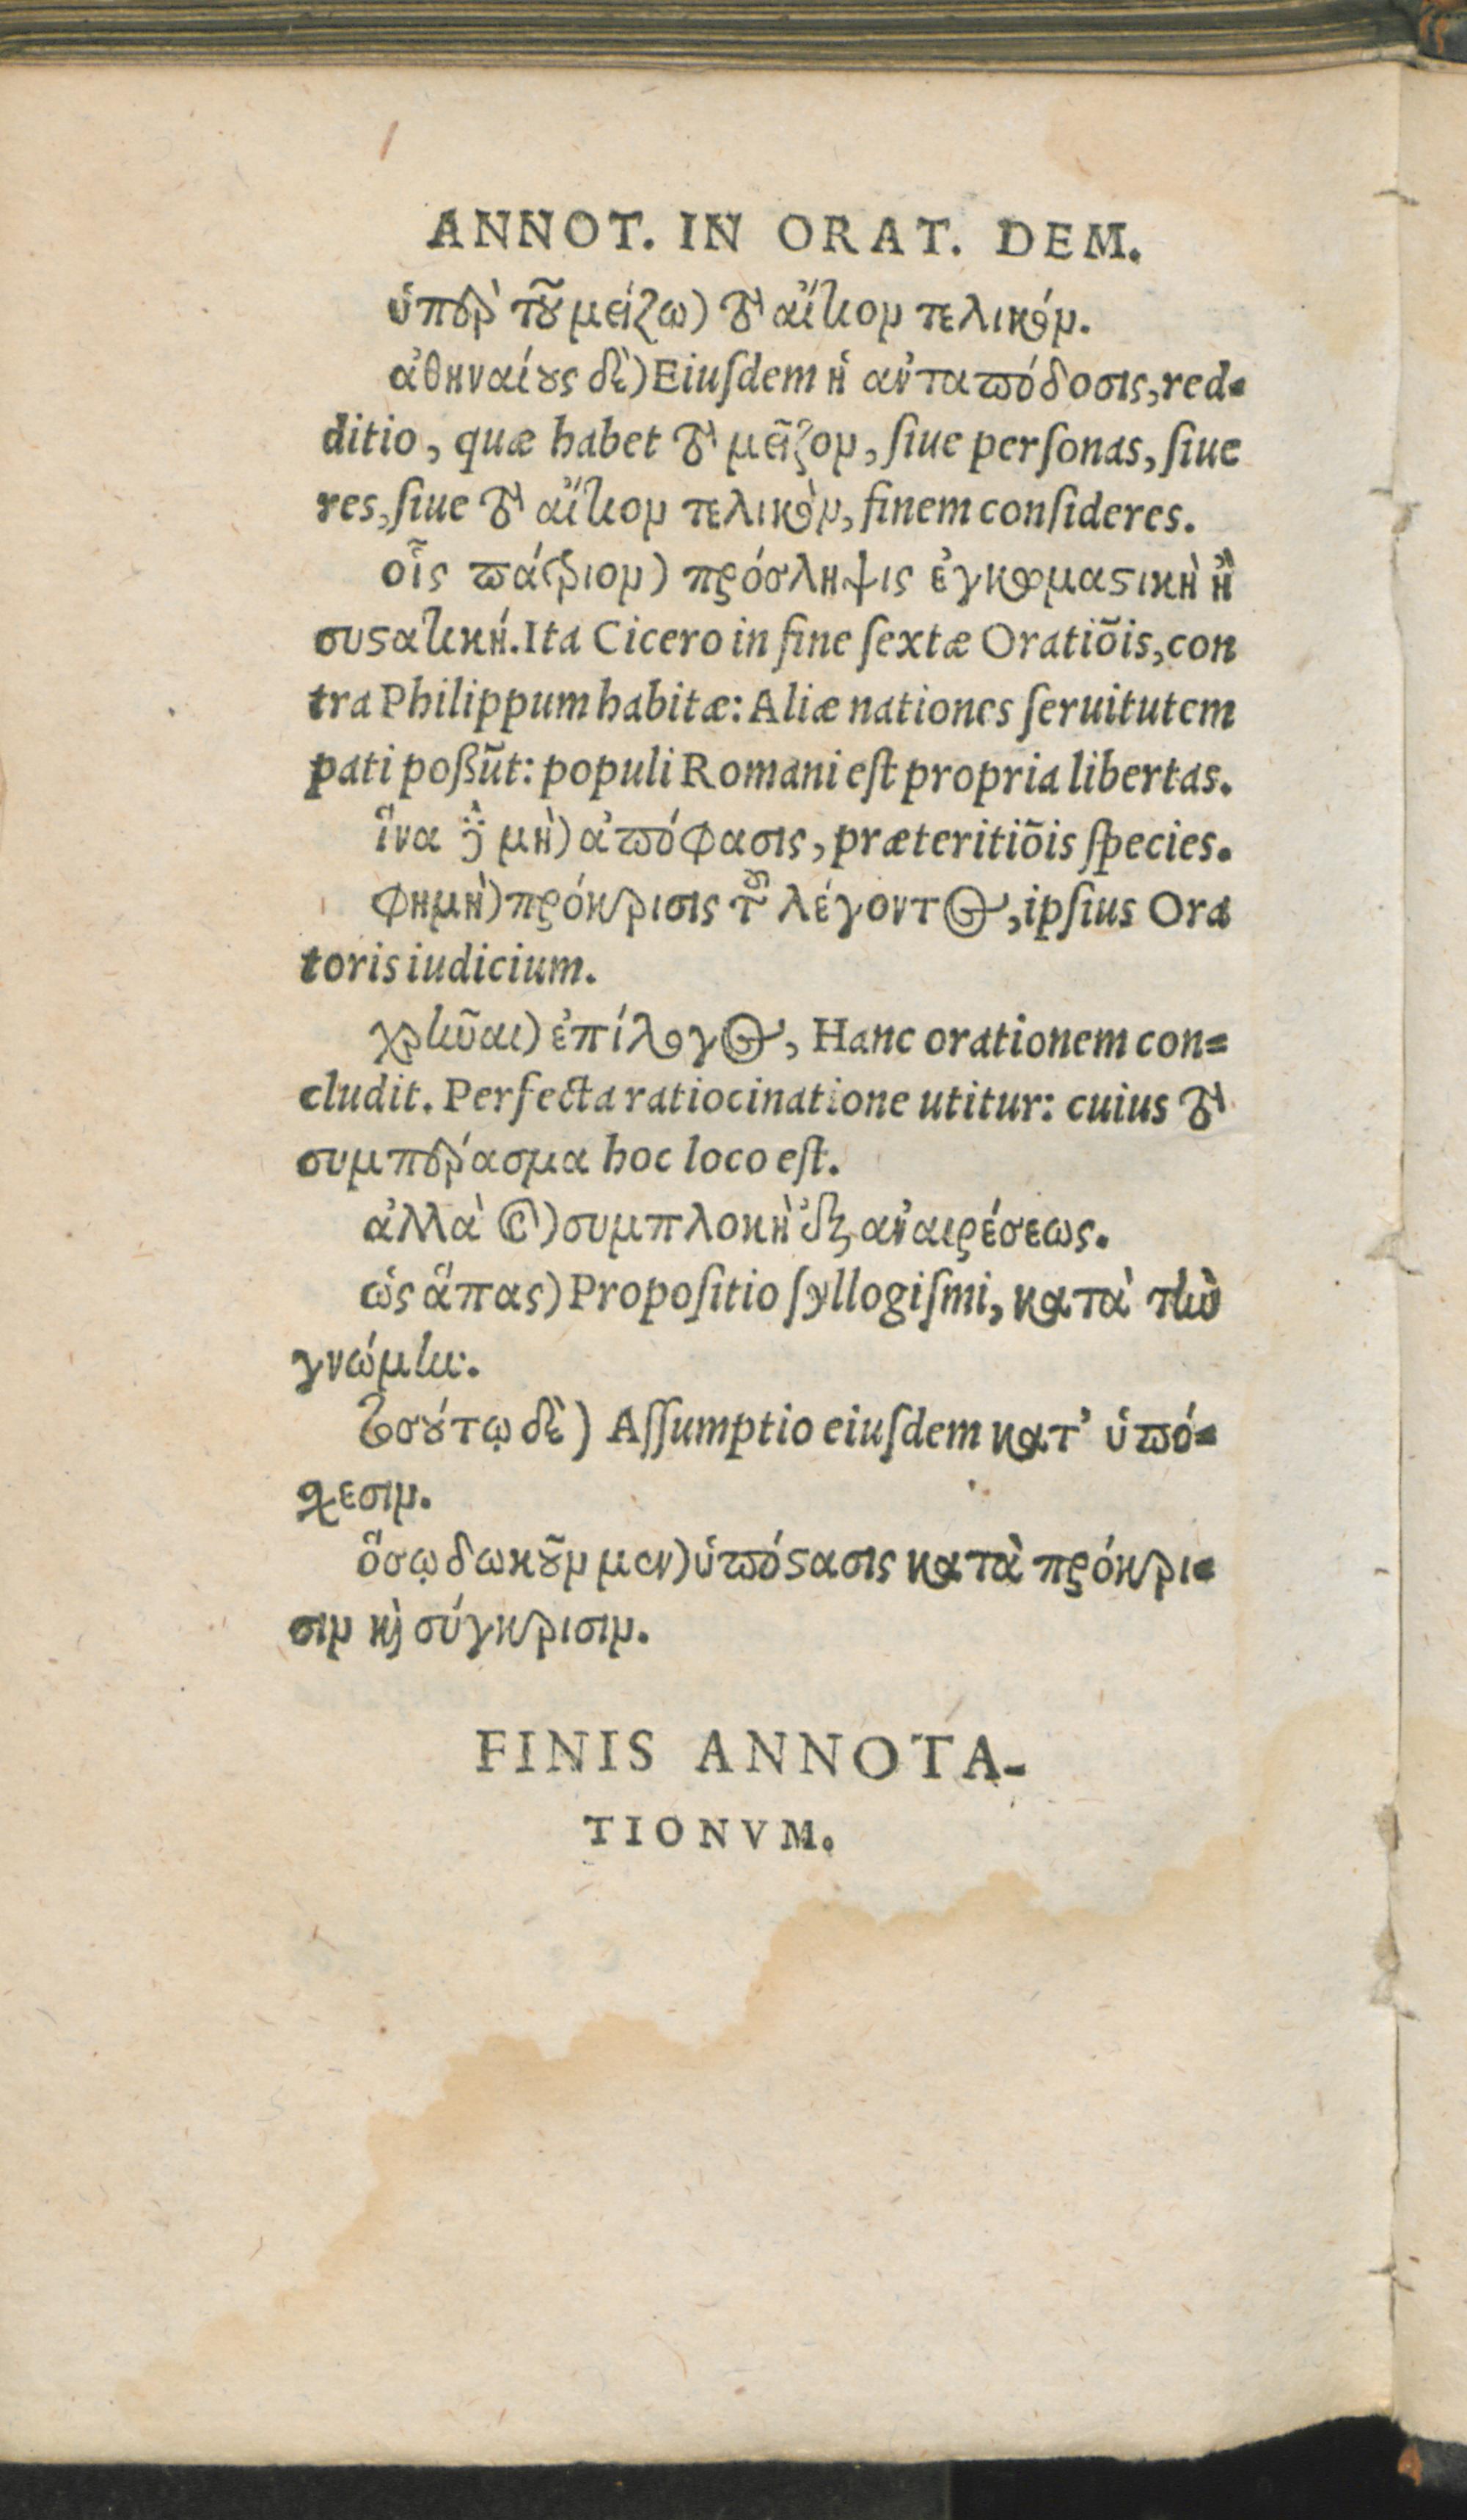 ANNOT. IN ORAT. DEM.
ὑπὲρ τοῦ μείζω) τὸ αἴτιον τελικόν.
ἀθηναίους δὲ) Eiuſdem ἡ ἀνταπόδοσις, red-
ditio, quæ habet τὸ μεῖζον, ſiue perſonas, ſiue
res, ſiue τὸ αἴτιον τελικὸν, finem conſideres.
οἷς πάτριον) πρόσληψις ἐγκωμαστικὴ ἢ
συστατική. Ita Cicero in fine ſextæ Oratiõis, con
tra Philippum habitæ: Aliæ nationes ſeruitutem
pati poßũt: populi Romani eſt propria libertas.
ἵνα δὲ μὴ) ἀπόφασις, præteritiõis ſpecies.
φημὴ) πρόκρισις τοῦ λέγοντος, ipſius Ora
toris iudicium.
χρῆναι) ἐπίλογος, Hanc orationem con-
cludit. Perfecta ratiocinatione utitur: cuius τὸ
συμπέρασμα hoc loco eſt.
ἀλλὰ καὶ) συμπλοκὴ ἐξ ἀναιρέσεως.
ὡς ἅπας) Propoſitio ſyllogiſmi, κατὰ τὴν
γνώμην.
τοσούτῳ δὲ) Aſſumptio eiuſdem κατ' ὑπό-
θεσιν.
ὅσῳ δωκοῦμμεν) ὑπόστασις κατὰ πρόκρι-
σιν καὶ σύγκρισιν.
FINIS ANNOTA-
TIONVM.